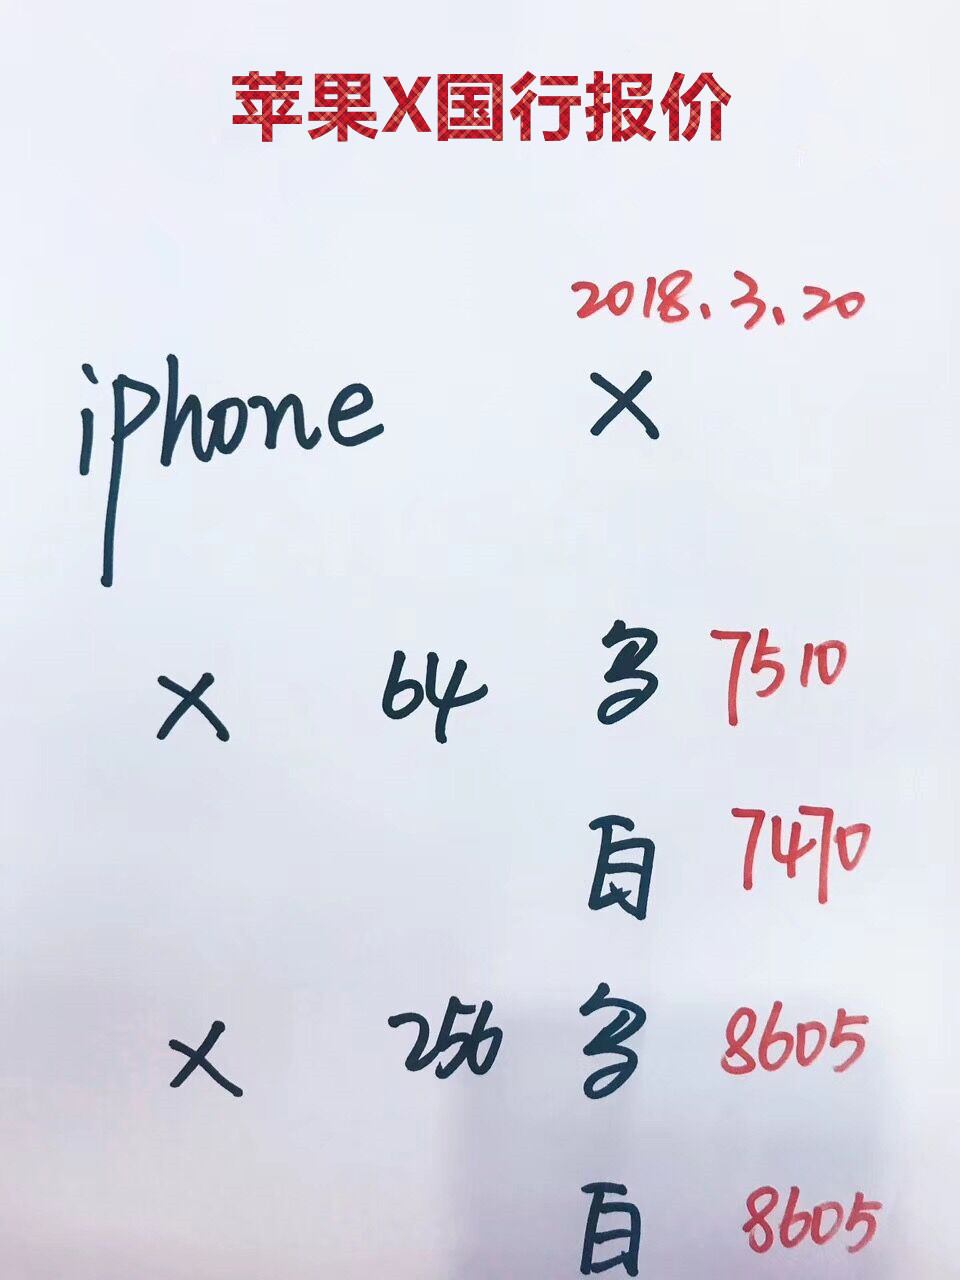 苹果X国行报价
2018.3.20
iphone X
X 64 多 7510
白 7470
X 256 多 8605
白 8605